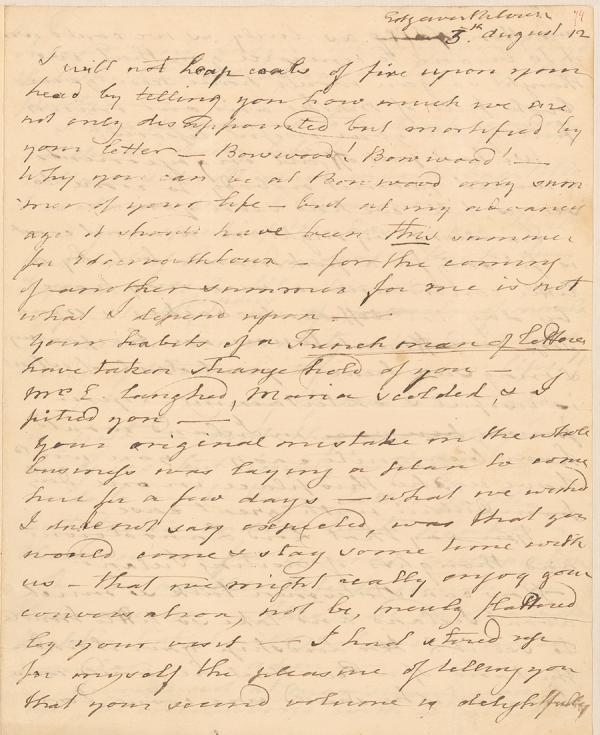 Edgeworthtown 74
5th August 12
I will not heap coals of fire upon your
head by telling you how much we are
not only disappointed but mortified by
your letter — Bowwood! Bowwood! —
Why you can be at Bowwood any sum
mer of your life – but at my advanced
age it should have been this summer
for Edgeworthtown – for the coming
of another summer for me is not
what I depend upon –
Your habits of a Frenchman of Letters
have taken strange hold of you –
Mrs E. laughed, Maria scolded, & I
pitied you —
Your original mistake in the whole
business was laying a plan to come
here for a few days – what we wished
I dare not say expected, was that you
would come & stay some time with
us – that we might really enjoy your
conversation, not be, merely flattered
by your visit — I had stored up
for myself the pleasure of telling you
that your second volume is delightfully